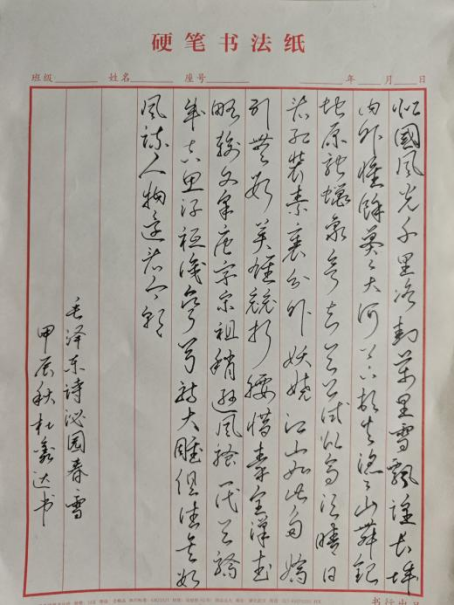 硬笔书法纸
班级 姓名 座号 年 月 日
北國风光千里冰封萬里雪飘望长城
内外惟餘莽々大河上下顿失滔々山舞银
蛇原驰蜡象欲与天公试比高须晴日
看红装素裹分外妖娆江山如此多娇
引无数英雄競折腰惜秦皇漢武
略输文采唐宗宋祖稍逊风骚一代天骄
成吉思汗祗識弯弓射大雕俱往矣数
风流人物还看今朝
毛泽东诗沁园春雪
甲辰秋杜鑫达书